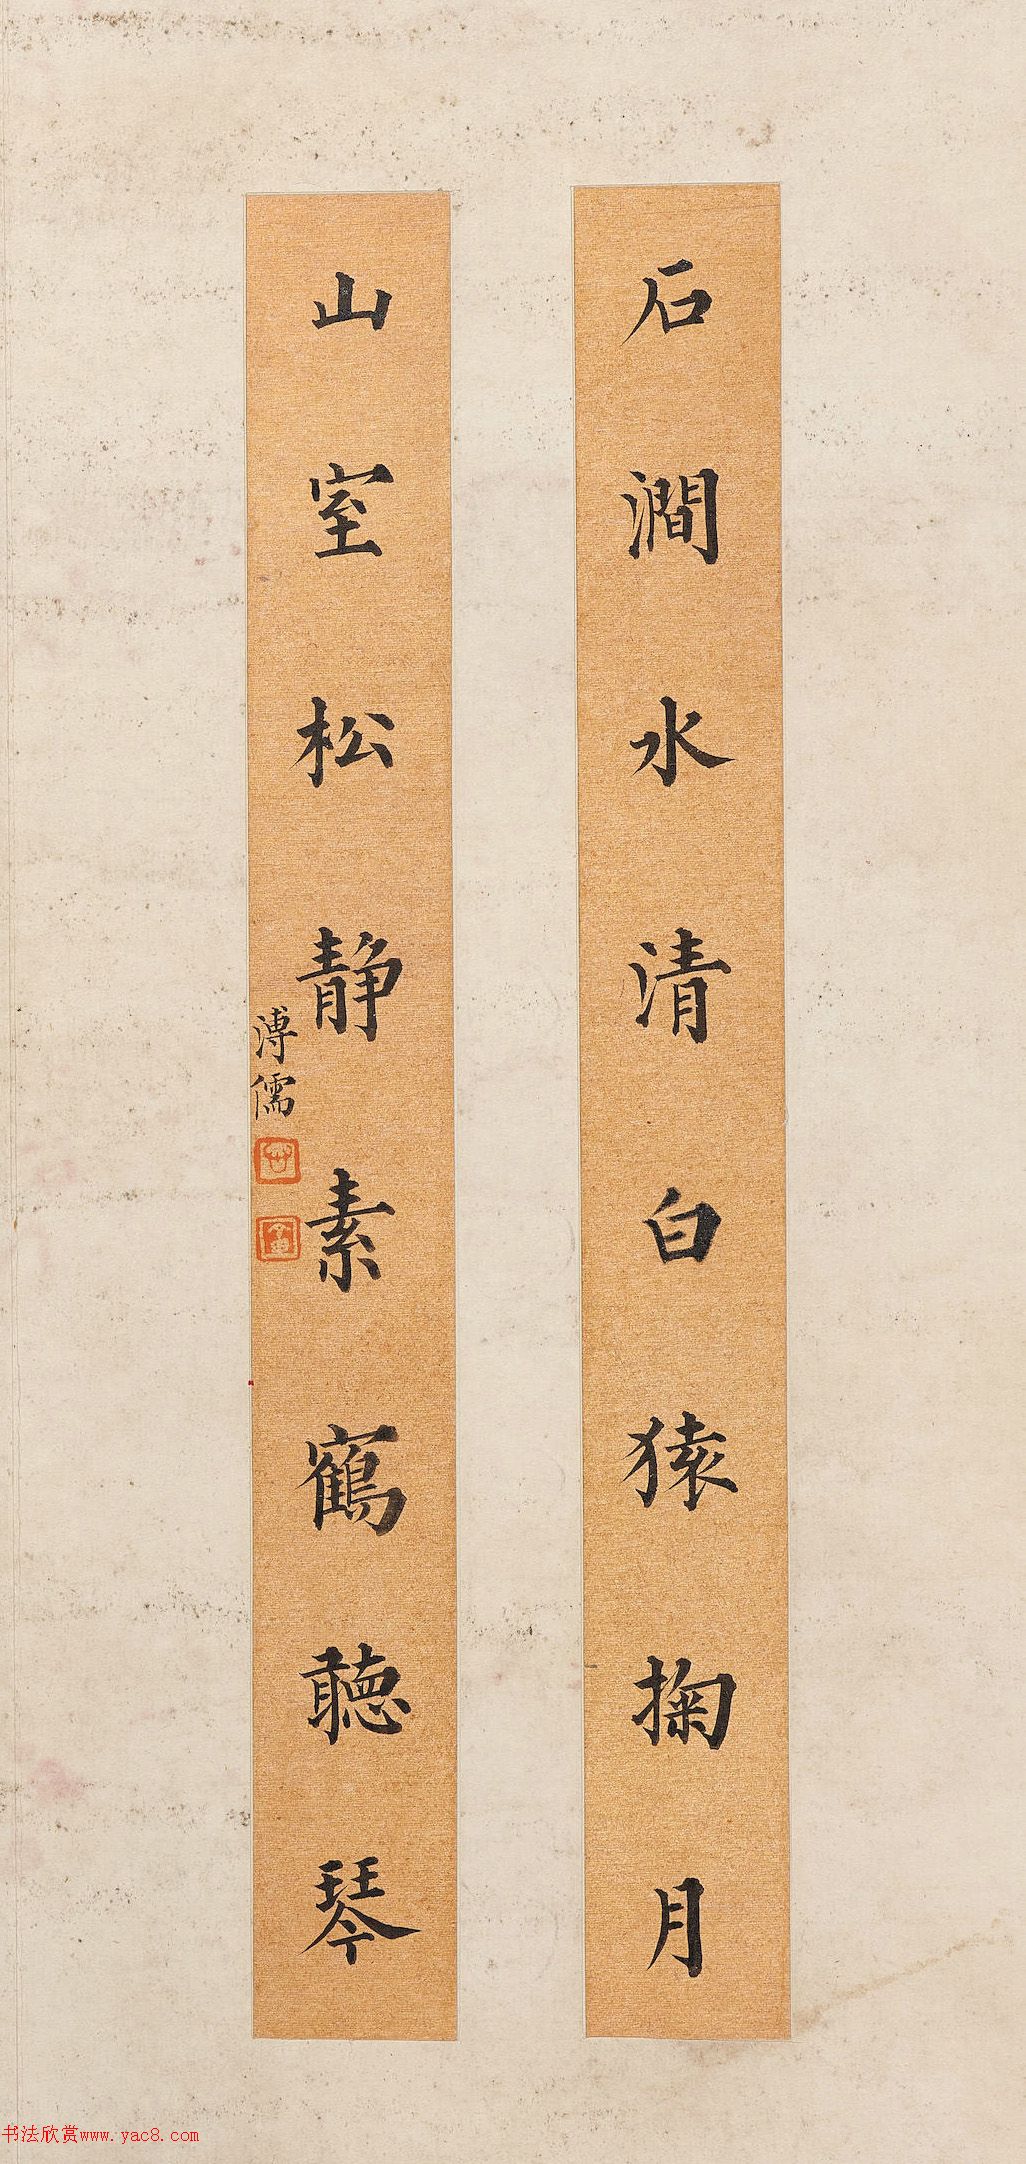 石澗水清白猿掬月
山室松靜素鶴聽琴
溥儒
书法欣赏www.yac8.com